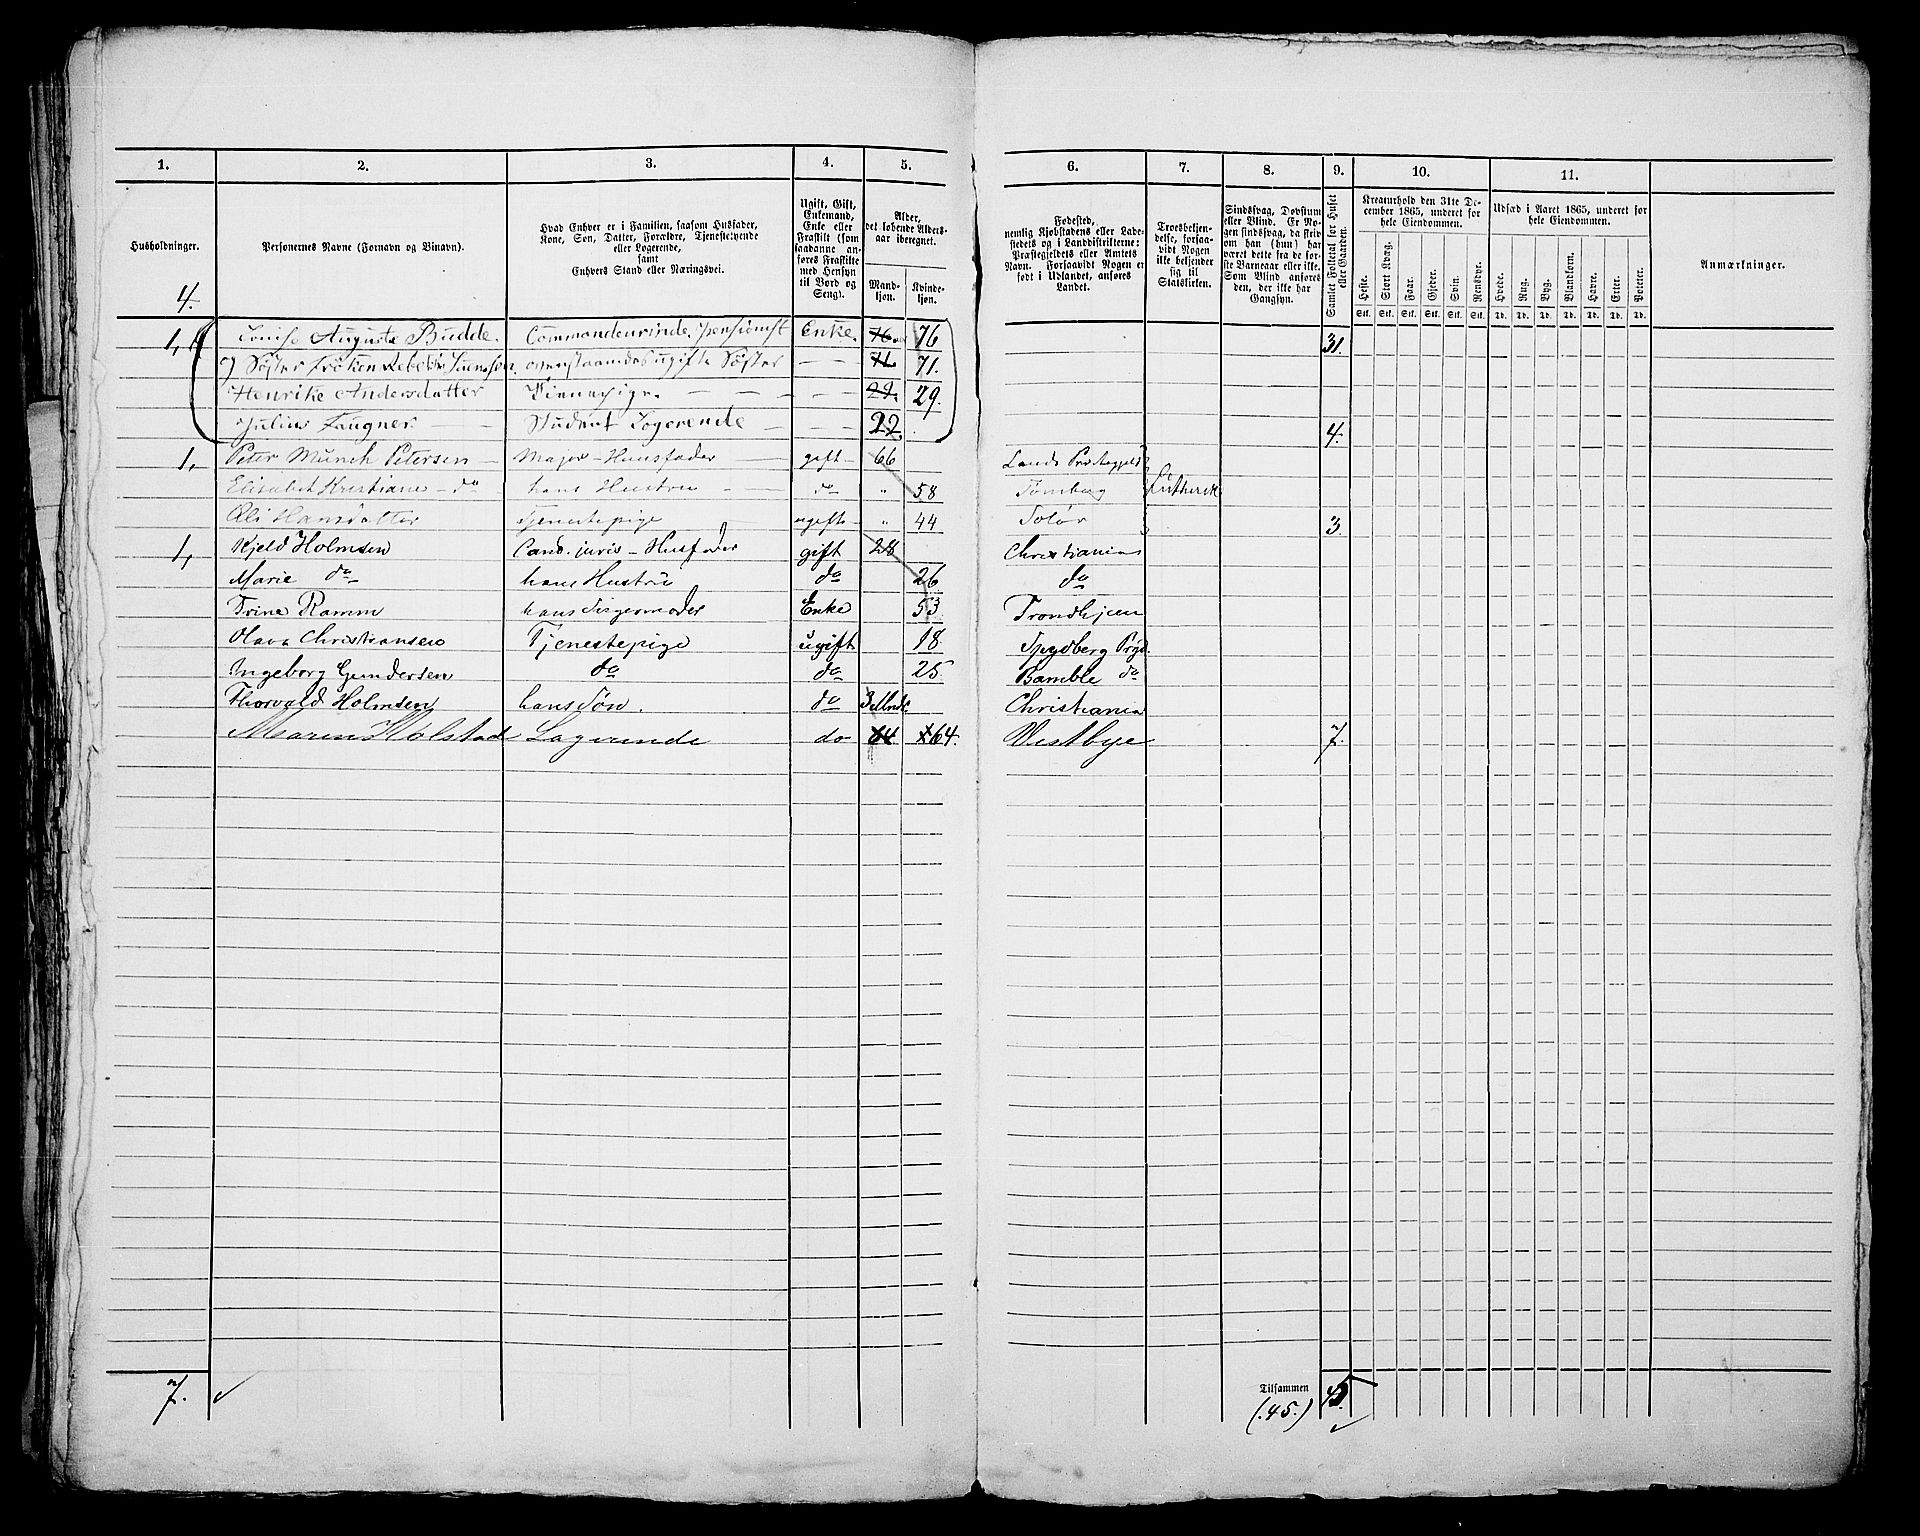 1. 2. 3. 4. 5. 6. 7. 8. 9. 10. 11.
Husholdninger.
4.
Personernes Navne (Fornavn og Binavn).
Hvad Enhver er i Familien, saasom Husfader,
Kone, Søn, Datter, Forældre, Tjenestetyende
eller Logerende,
samt
Enhvers Stand eller Næringsvei.
Ugift, Gift,
Enkemand,
Enke eller
Fraskilt (som
saadanne an-
føres Fraskilte
med Hensyn
til Bord og
Seng).
Alder,
det løbende Alders-
aar iberegnet.
Mand-
kjøn.
Kvinde-
kjøn.
Fødested,
nemlig Kjøbstadens eller Lade-
stedets og i Landdistrikterne:
Præstegjeldets eller Amtets
Navn. Forsaavidt Nogen er
født i Udlandet, anføres
Landet.
Troesbekjen-
delse, forsaa-
vidt Nogen
ikke bekjender
sig til
Statskirken.
Sindssvag, Døvstum
eller Blind. Er No-
gen sindssvag, da skriv
om han (hun) har
været dette fra de før-
ste Barneaar eller ikke.
Som Blind anføres
den, der ikke har
Gangsyn.
Samlet Folketal for Huset
eller Gaarden.
Kreaturhold den 31te De-
cember 1865, underet for
hele Eiendommen.
Heste. Stort Kvæg. Faar. Gjeder. Svin. Rensdyr.
Stk. Stk. Stk. Stk. Stk. Stk.
Udsæd i Aaret 1865, underet for
hele Eiendommen.
Hvede. Rug. Byg. Blandkorn. Havre. Erter. Poteter.
Td. Td. Td. Td. Td. Td. Td.
Anmærkninger.
1, Louise Auguste Budde. Commandeurinde. pensionist Enke. 76 76 31.
Søster Frøken ugifte Søster — 71 71.
Henrike Andersdatter — 29. 29.
Julius Faugner Student Logerende — 22. 4.
1, Peter Münch Petersen — Major — Huusfader gift 66 Lands Præstegjeld
Elisabet Kristiane — do hans Hustru do " 58 Luthersk
Oli Hansdatter Tjenestepige ugift " 44 Solør 3.
1, Kjeld Holmsen Cand. juris — Husfader gift 28 Christiania
Marie do hans Hustru do 26 do
Trine Ramm hans Enke 53 Trondhjem
Olava Christiansen Tjenestepige ugift 18 Spydberg Prgd.
Ingeborg Gundersen do do 25. Bamble do
Thorvald Holmsen hans Søn. do Christiania
Maren Holstad Logerende do 64 x64. Vestbye 7.
7. ✓
Tilsammen 45.
(.45.) ✓